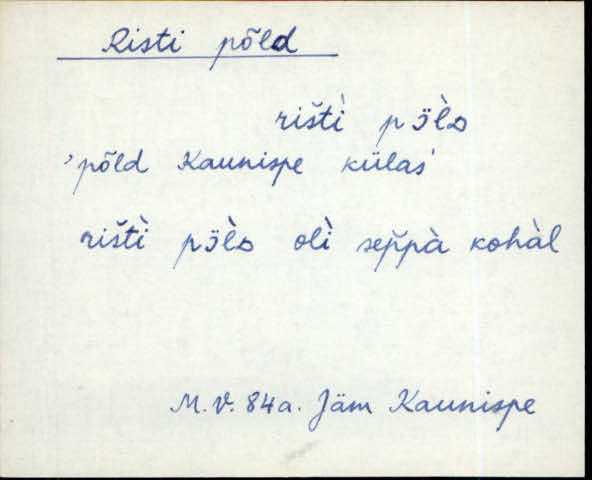 Risti põld
rištì pɔ̈̀lᴅ
'põld Kaunispe külas'
rištì pɔ̈̀lᴅ olì sep̆pà kohàl
M.V. 84a. Jäm Kaunispe